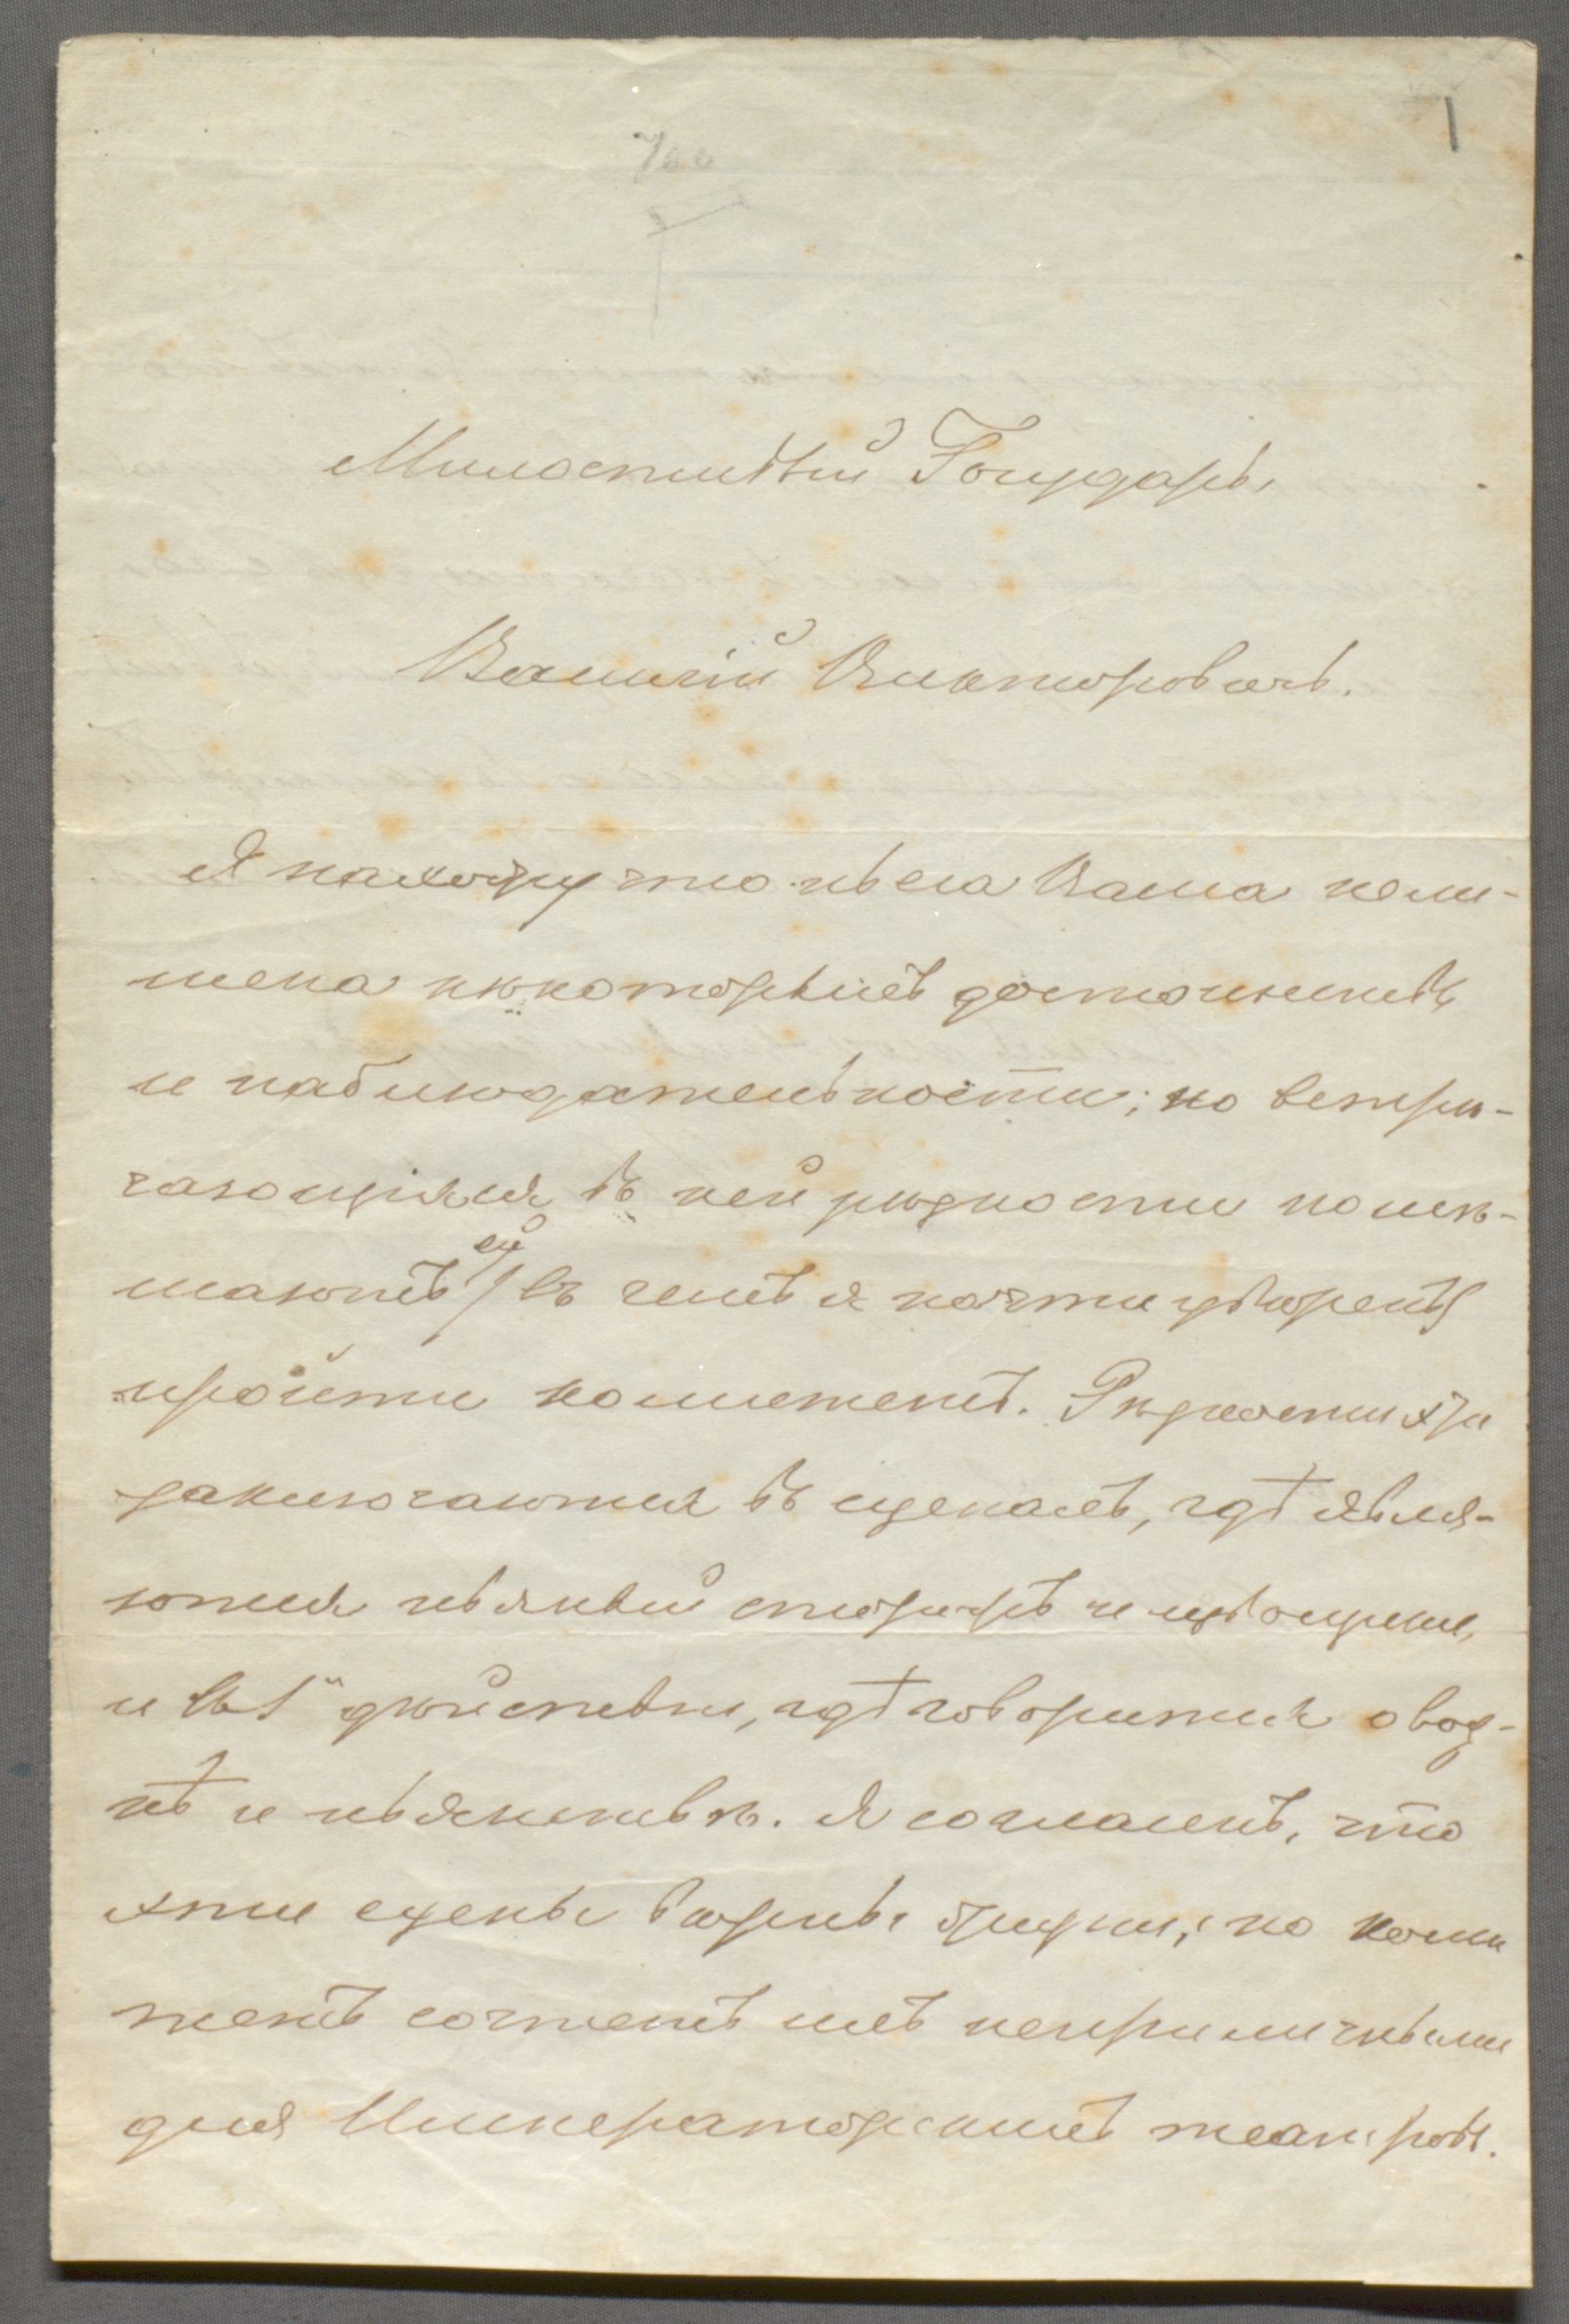 1
700
Милостивый Государь,
Василій Викторовичъ.
Я нахожу что пьеса Ваша не ли-
шена нѣкоторыхъ достоинствъ
и наблюдательности; но встрѣ-
чающіяся въ ней рѣзкости помѣ-
шаютъ ей, въ чемъ я почти увѣренъ,
пройти комитетъ. Рѣзкости эти
заключаются въ сценахъ, гдѣ явля-
ются пьяный сторожъ и
и въ 1ᵐ дѣйствіи, гдѣ говорится о вод-
кѣ и пьянствѣ. Я согласенъ, что
эти сцены вѣрны жизни; но коми
тетъ сочтетъ ихъ неприличными
для Императорскихъ театровъ.